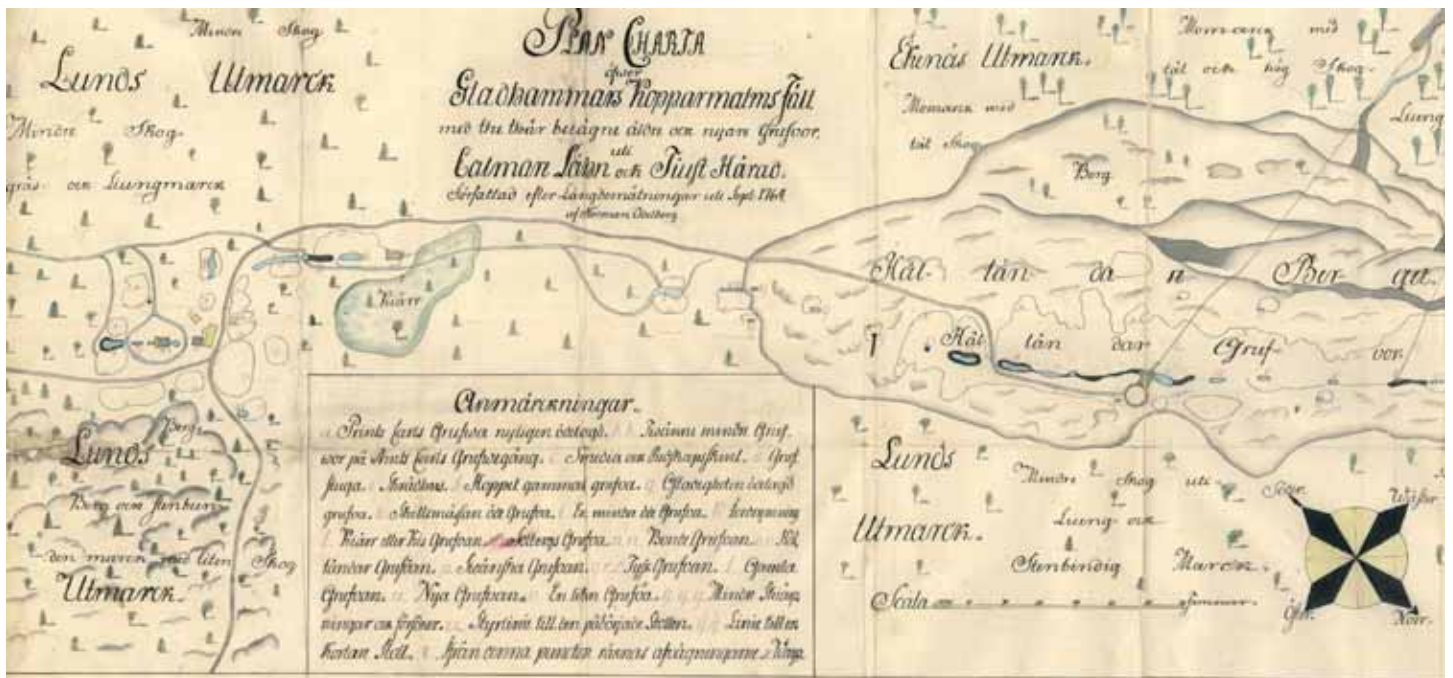 Mindre Skog
Lunds Utmarck
Mindre Skog
gräs- och Liungmarck
PLAN CHARTA
öfver
Gladhammars Kopparmalms fält
med the thär belägne äldre och nyare Grufvor,
uti
Calmar Lähn och Tiust Härad.
Författad efter Längdemätningar uti Sept. 1764
af Herman
Ekenäs Utmark.
Momarck med
täl Skog
Momarck med
täl och hög Skog.
Liung
Berg
Hål- tän da n Ber- get.
Hål tän dar Gruf- vor.
Kiärr
Berg
Lunds
Berg och stenbun-
den marck med liten Skog
Utmarck.
Anmärckningar.
Prints Carls Grufva nyligen ödelagd. Tvänne mindre Gruf-
vor på Prints Carls Grufvegång. Smedia och Gruf
stuga. Koppel gammal grufva. Gladigheten ödelagd
grufva. öde Grufva. En mindre öde Grufva.
Kiärr eller Grufvan. Grufva. Bonde Grufvan. Hål
tändar Grufvan. Svänska Grufvan. Tysk Grufvan. Gamla
Grufvan. Nya Grufvan. En liten Grufva. Mindre Skärp
ningar och försöker. till den påbörjade Stollen. Linie till en
Kortare Stoll. Från denna puncten räknas afvägningarne
Lunds
Utmarck.
Mindre Skog uti
Liung och
Stenbindig Marck.
Scala famnar.
Söder. Wäster
Öster. Norr.